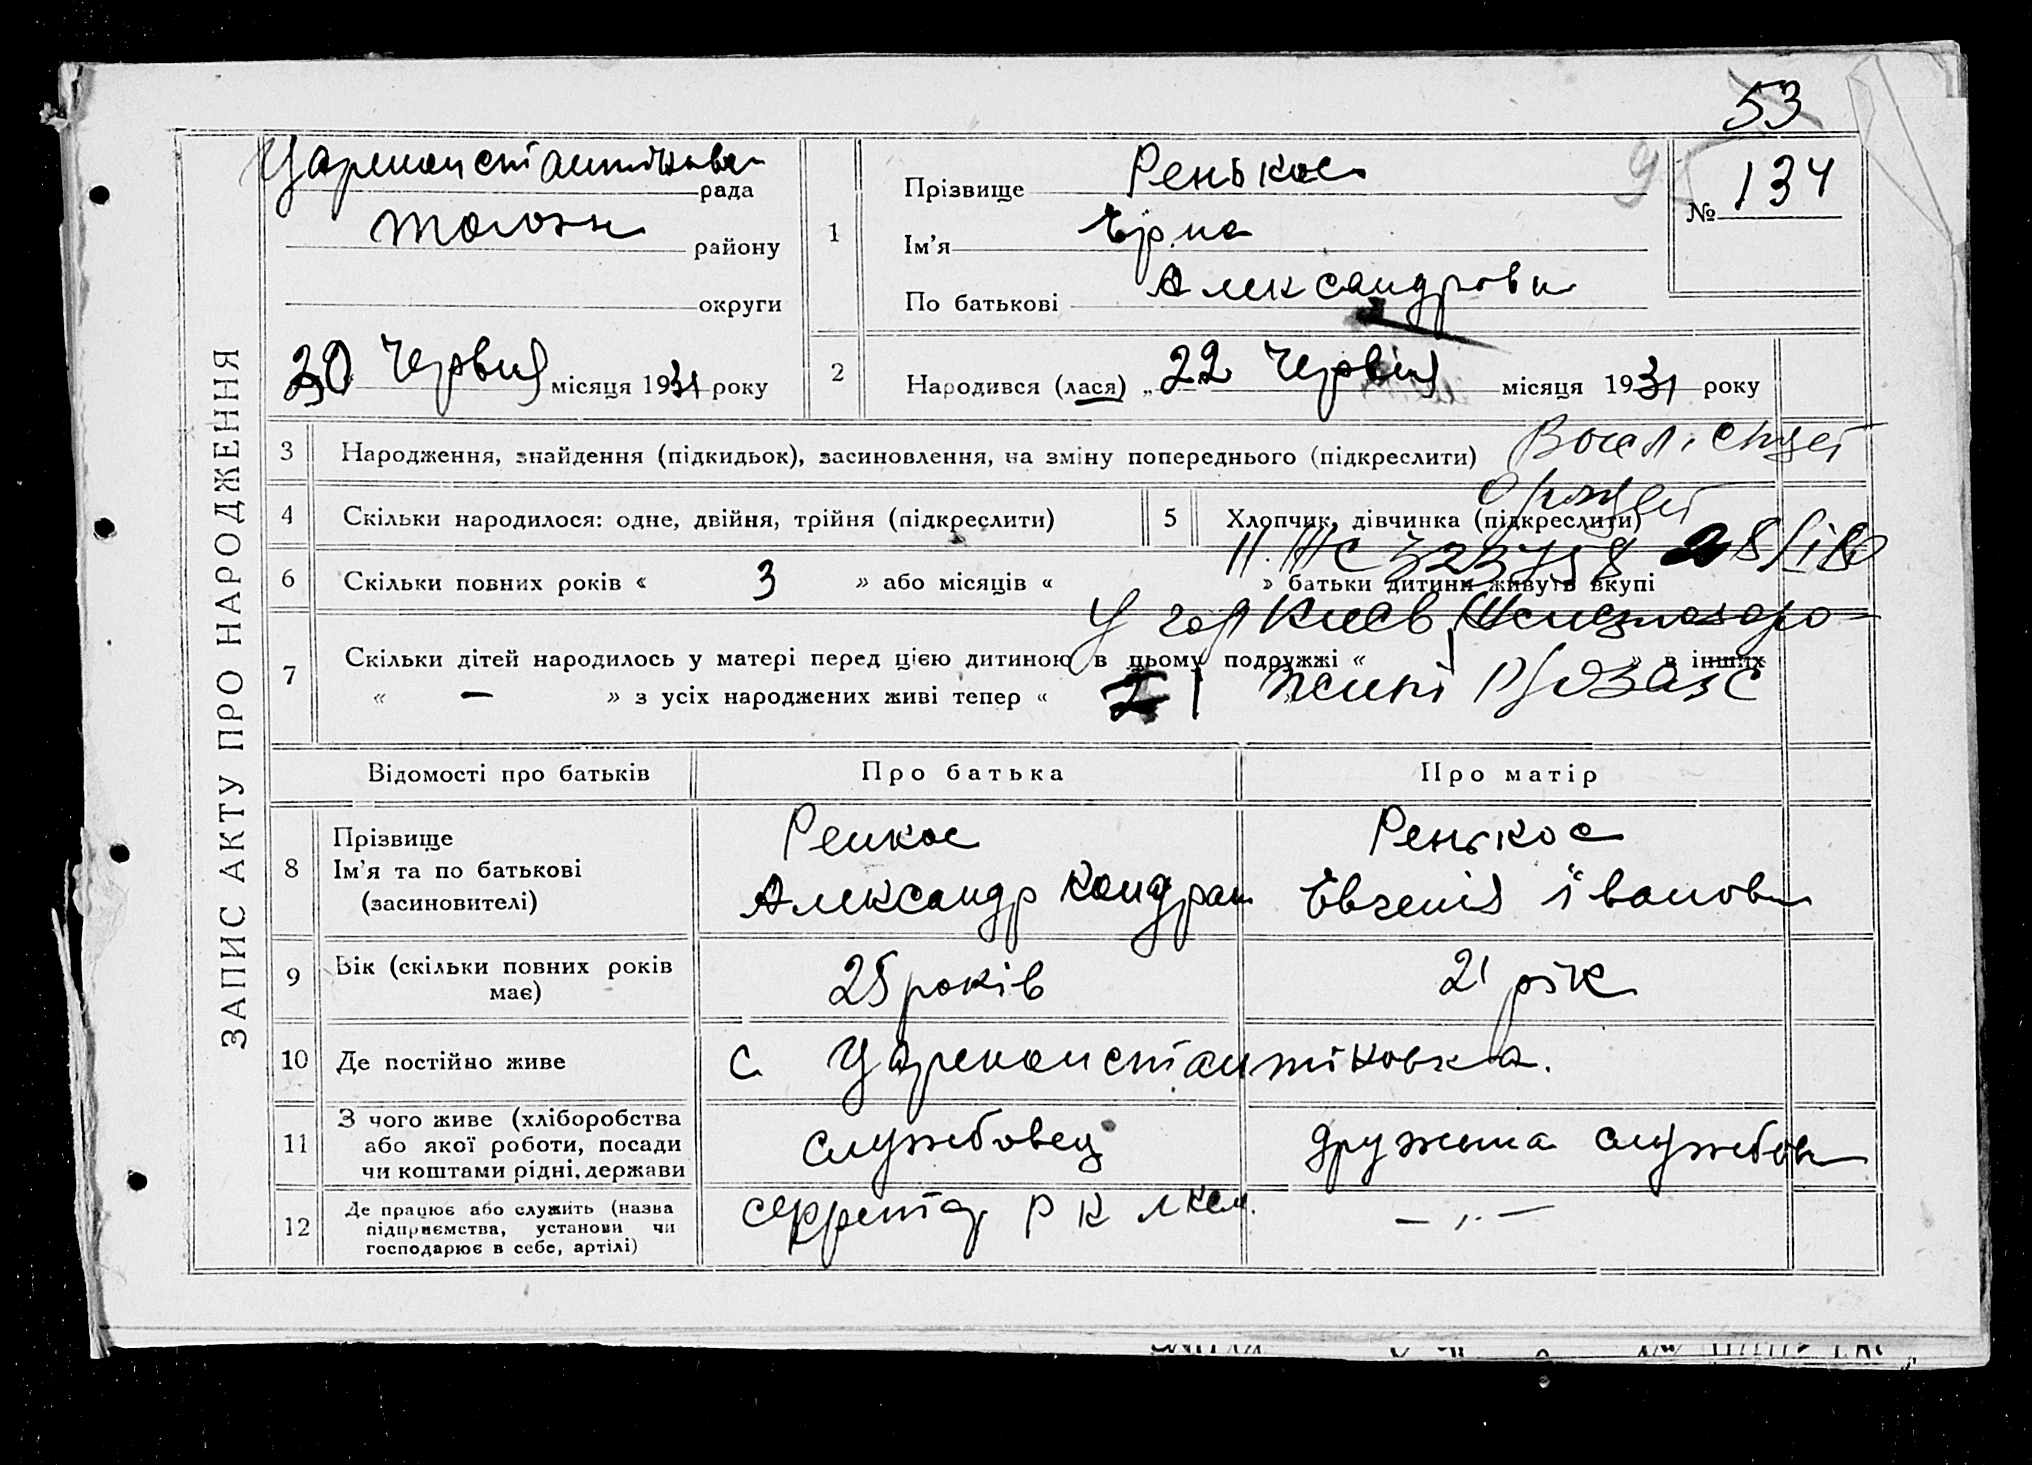 53
ЗАПИС АКТУ ПРО НАРОДЖЕННЯ
рада
району
округи
30 Червня місяця 1931 року
1
Прізвище Ренькас
Ім'я
По батькові Александровн
№ 134
95
2
Народився (лася) „ 22 Червня місяця 1931 року
3
Народження, знайдення (підкидьок), засиновлення, на зміну попереднього (підкреслити)
4
Скільки народилося: одне, двійня, трійня (підкреслити)
5
Хлопчик, дівчинка (підкреслити)
6
Скільки повних років « 3 » або місяців « » батьки дитини живуть вкупі
7
Скільки дітей народилось у матері перед цією дитиною в цьому подружжі « 1 » в інших
« — » з усіх народжених живі тепер « 1
Відомості про батьків
Про батька
Про матір
8
Прізвище
Ім'я та по батькові
(засиновителі)
Ренкос
Александр Кондрат
Ренькос
Евгенія Івановн
9
Вік (скільки повних років
має)
25 років
21 рік
10
Де постійно живе
с. Цареконстантіновка.
11
З чого живе (хліборобства
або якої роботи, посади
чи коштами рідні, держави
службовец
дружина службов
12
Де працює або служить (назва
підприємства, установи чи
господарює в себе, артілі)
Р К ЛКСМ.
— „ —